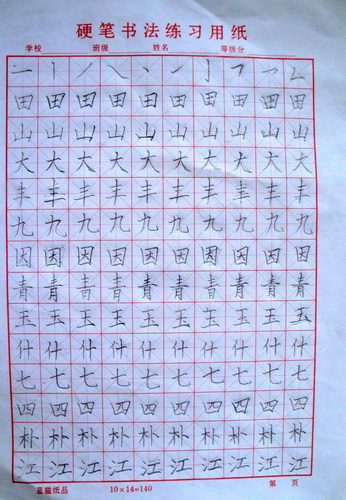 硬笔书法练习用纸
学校 班级 姓名 等级分
一丨丿㇏丶㇀亅𠃍乛𠃊
田田田田田田田田田田
山山山山山山山山山山
大大大大大大大大大大
丰丰丰丰丰丰丰丰丰丰
九九九九九九九九九九
因因因因因因因因因因
青青青青青青青青青青
玉玉玉玉玉玉玉玉玉玉
什什什什什什什什什什
七七七七七七七七七七
四四四四四四四四四四
朴朴朴朴朴朴朴朴朴朴
江江江江江江江江江江
蓝猫纸品 10×14=140 第 页